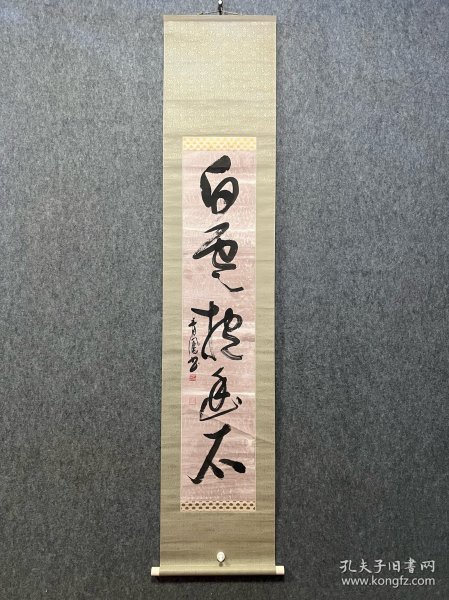 白雲抱幽石
孔夫子旧书网
www.kongfz.com